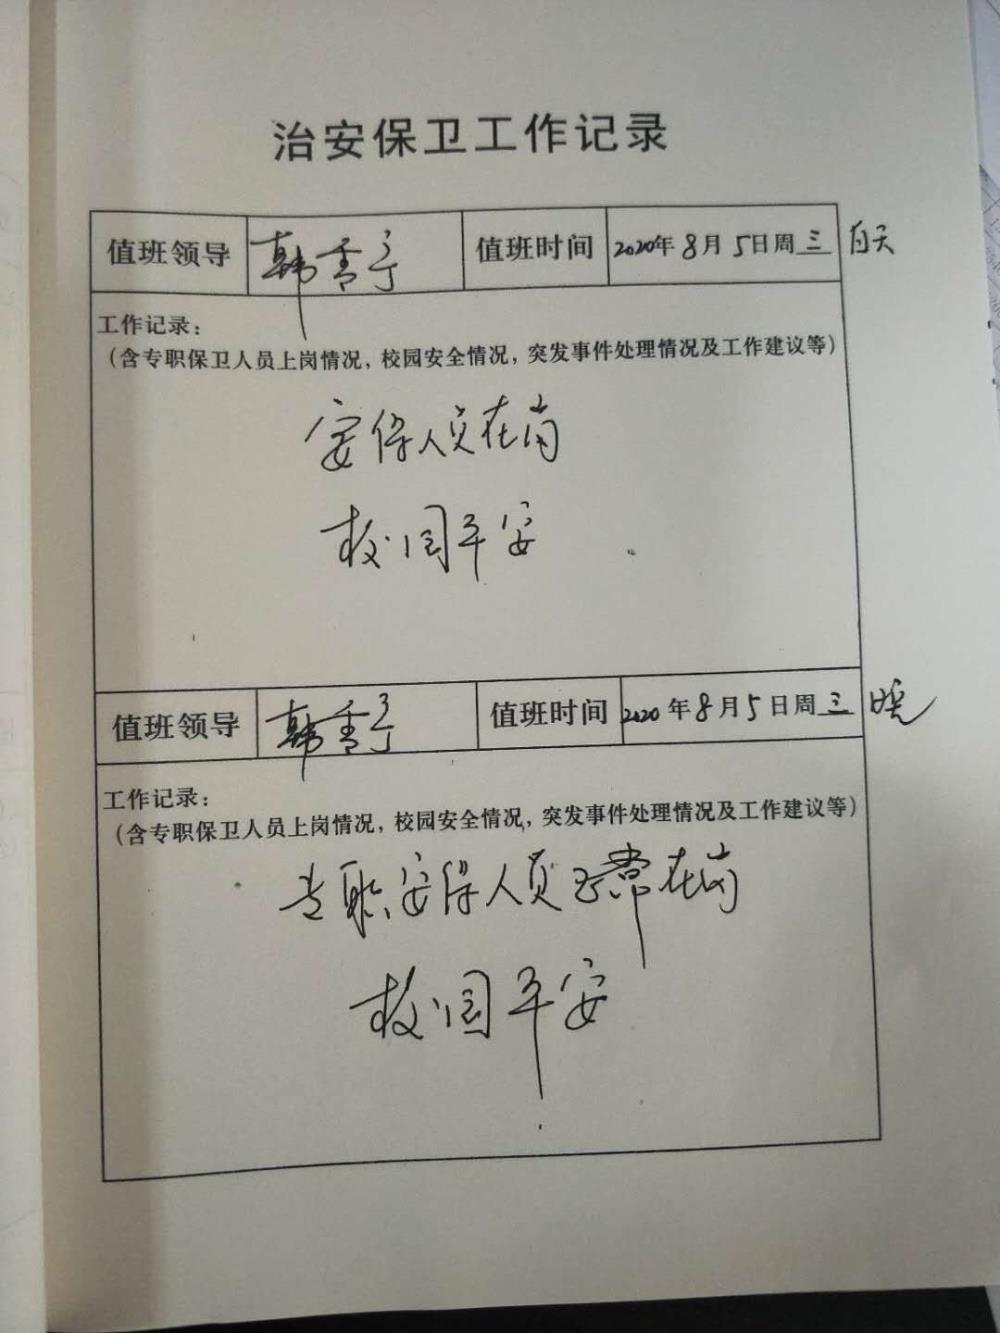 治安保卫工作记录
值班领导 韩香宁 值班时间 2020年8月5日周三 白天
工作记录：
（含专职保卫人员上岗情况，校园安全情况，突发事件处理情况及工作建议等）
安保人员在岗
校园平安
值班领导 韩香宁 值班时间 2020年8月5日周三 晚
工作记录：
（含专职保卫人员上岗情况，校园安全情况，突发事件处理情况及工作建议等）
专职安保人员正常在岗
校园平安